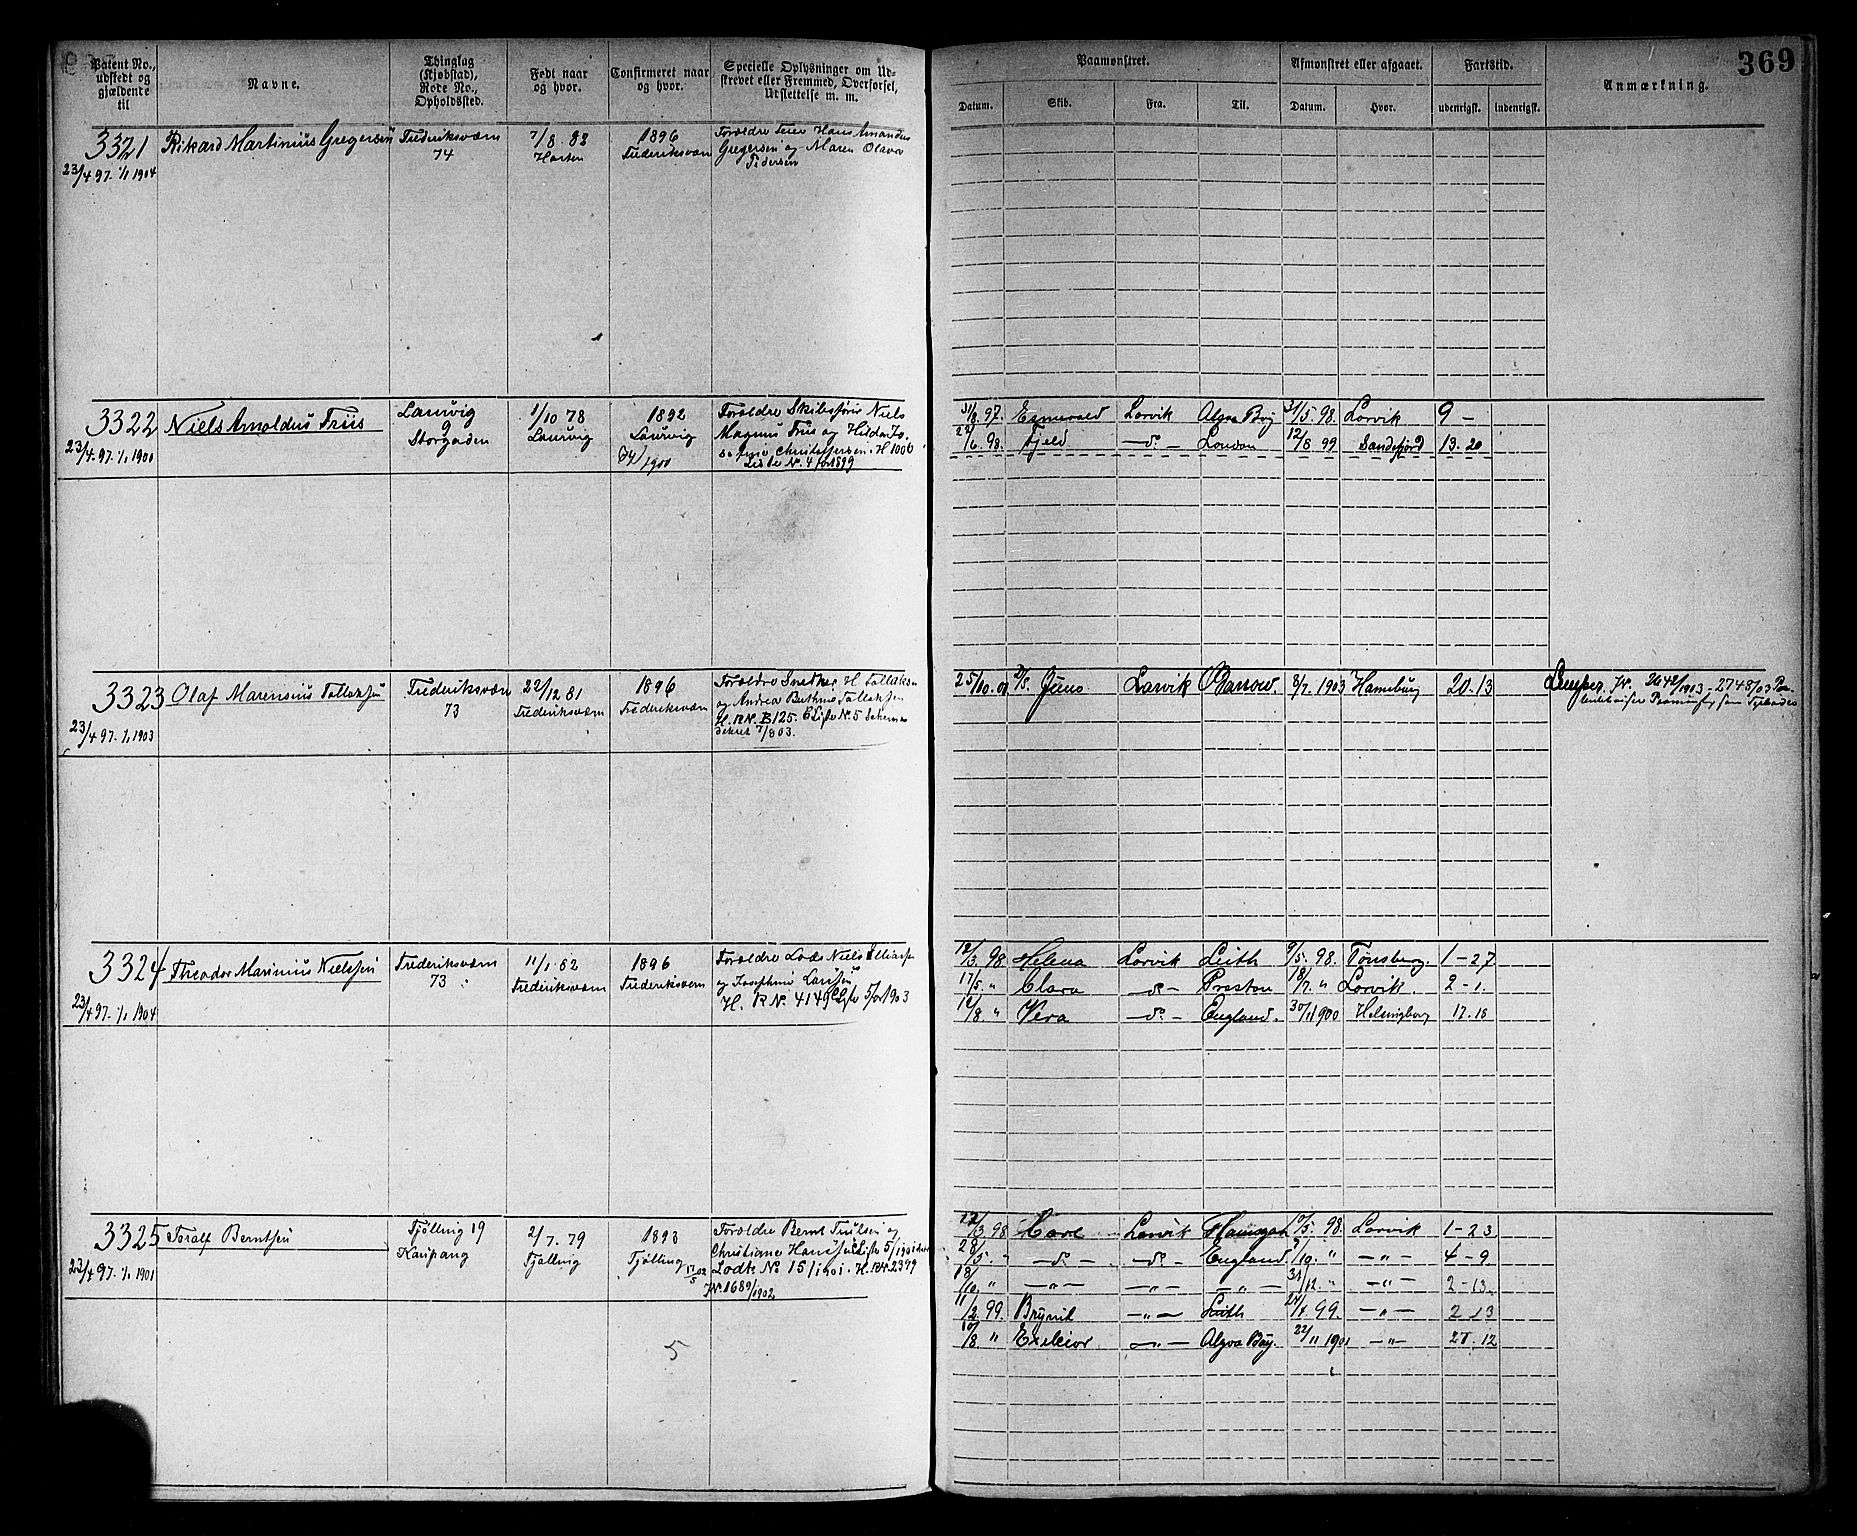 369
Patent No., udstedt og gjældende til
Navne.
Thinglag (Kjøbstad), Rode No., Opholdssted.
Født naar og hvor.
Confirmeret naar og hvor.
Specielle Oplysninger om Udskrevet eller Fremmed, Overførsel, Udslettelse m. m.
Paamønstret.
Afmønstret eller afgaaet.
Fartstid.
Anmærkning.
Datum. Skib. Fra. Til. Datum. Hvor. udenrigsk. indenrigsk.
3321 Rikard Martinius Gregersen Frederiksværn 7/8 82 1896 Forældre Feier Hans Amandus
23/4 97. 1/1 1904 74 Horten Frederiksværn Gregersen og Maren Olava
Pedersen
3322 Niels Arnoldus Friis Laurvig 1/10 78 1892 Forældre Skibsfører Niels
23/4 97. 1/1 1900 9 Laurvig Laurvig Magnus Friis og Hilda
Storgaden 1900 Christoffersen. H 1006
Liste No. 4 for 1899
31/8 97. Esmerald Larvik Algoa Bay 31/5 98. Larvik 9 -
22/6 98. Fjeld -do- London 12/8 99 Sandefjord 13. 20
3323 Olaf Marensius Tallaksen Frederiksværn 22/12 81 1896 Forældre Snedker H. Tallaksen
23/4 97. 1/1 1903 73 Frederiksværn Frederiksværn og Andrea Bethine Tallaksen
H. R No. B 125. C Liste No. 5
7/8 03.
25/10 01 Juno Larvik Barrow. 3/7. 1903 Hamburg 20. 13
3324 Theodor Marinius Nielsen Frederiksværn 11/1 82 1896 Forældre Lods Niels
23/4 97. 1/1 1904 73 Frederiksværn Frederiksværn og Josephine Larsen
H. R No. 4149 Liste 5 for 1903
12/3 98 Helena Larvik Leith 9/5 98. Tønsberg. 1-27
17/5 " Clara -do- Preston 18/7. " Larvik. 2-1
12/8. " Vera -do- England. 30/11 1900 Helsingborg 17.18
3325 Toralf Berntsen Tjølling 19 2/7. 79 1893 Forældre Bernt Trulsen og
23/4 97. 1/1 1901 Kaupang Tjølling Tjølling Christiane Hansen Liste 5/1901
Lodts No 15/1901. H. R No. 2399
No. 1689/1902
12/3 98 Care Larvik 98. Larvik 1-23
28/5 " -do- -do- England. /10. " -"- 4-9
18/10 " -"- -"- -"- 31/12. " -"- 2-13.
11/2 99. -"- Leith 99. -"- 2.13
10/8 " -"- Algoa Bay. 22/11 1901 -"- 12
5